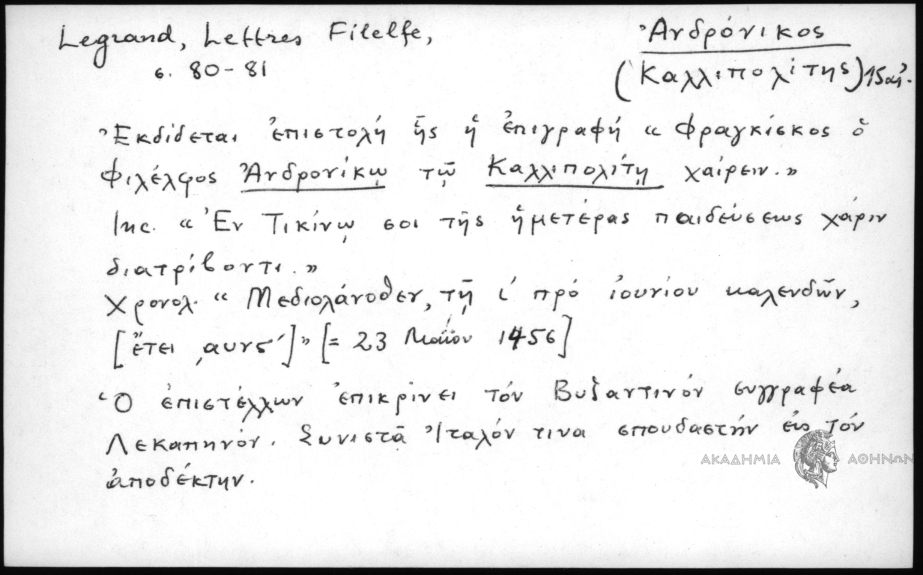 Legrand, Lettres Filelfe,
σ. 80-81
Ἀνδρόνικος
(Καλλιπολίτης) 15 αἰ.
Ἐκδίδεται ἐπιστολή ἧς ἡ ἐπιγραφή « Φραγκίσκος ὁ
Φιλέλφος Ἀνδρονίκῳ τῷ Καλλιπολίτῃ χαίρειν.»
Inc. « Ἐν Τικίνῳ σοι τῆς ἡμετέρας παιδεύσεως χάριν
διατρίβοντι.»
Χρονολ. « Μεδιολάνοθεν, τῇ ι´ πρό ἰουνίου καλενδῶν,
[ἔτει ͵αυνϛ´]» [= 23 Μαΐου 1456]
Ὁ ἐπιστέλλων ἐπικρίνει τόν Βυζαντινόν συγγραφέα
Λεκαπηνόν. Συνιστᾶ Ἰταλόν τινα σπουδαστήν εἰς τόν
ἀποδέκτην.
ΑΚΑΔΗΜΙΑ ΑΘΗΝΩΝ